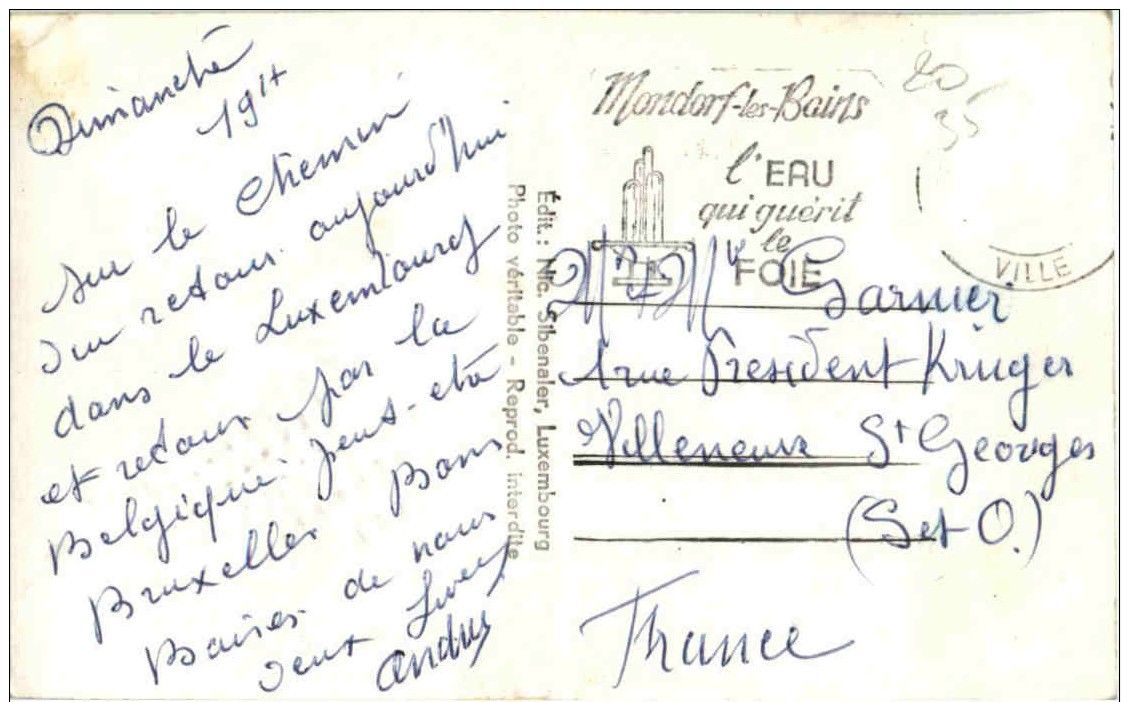 Dimanche
sur le chemin
du retour aujourd'hui
dans le Luxembourg
et retour par la
Belgique peut-etre
Bruxelles Bons
Baisers de nous
deux
Édit.: Nic. Sibenaler, Luxembourg
Photo véritable - Reprod. interdite
Mondorf-les-Bains
l'EAU
qui guérit
le
FOIE
VILLE
20
35
Garnier
1 rue Président Kruger
Villeneuve St Georges
(S et O.)
France